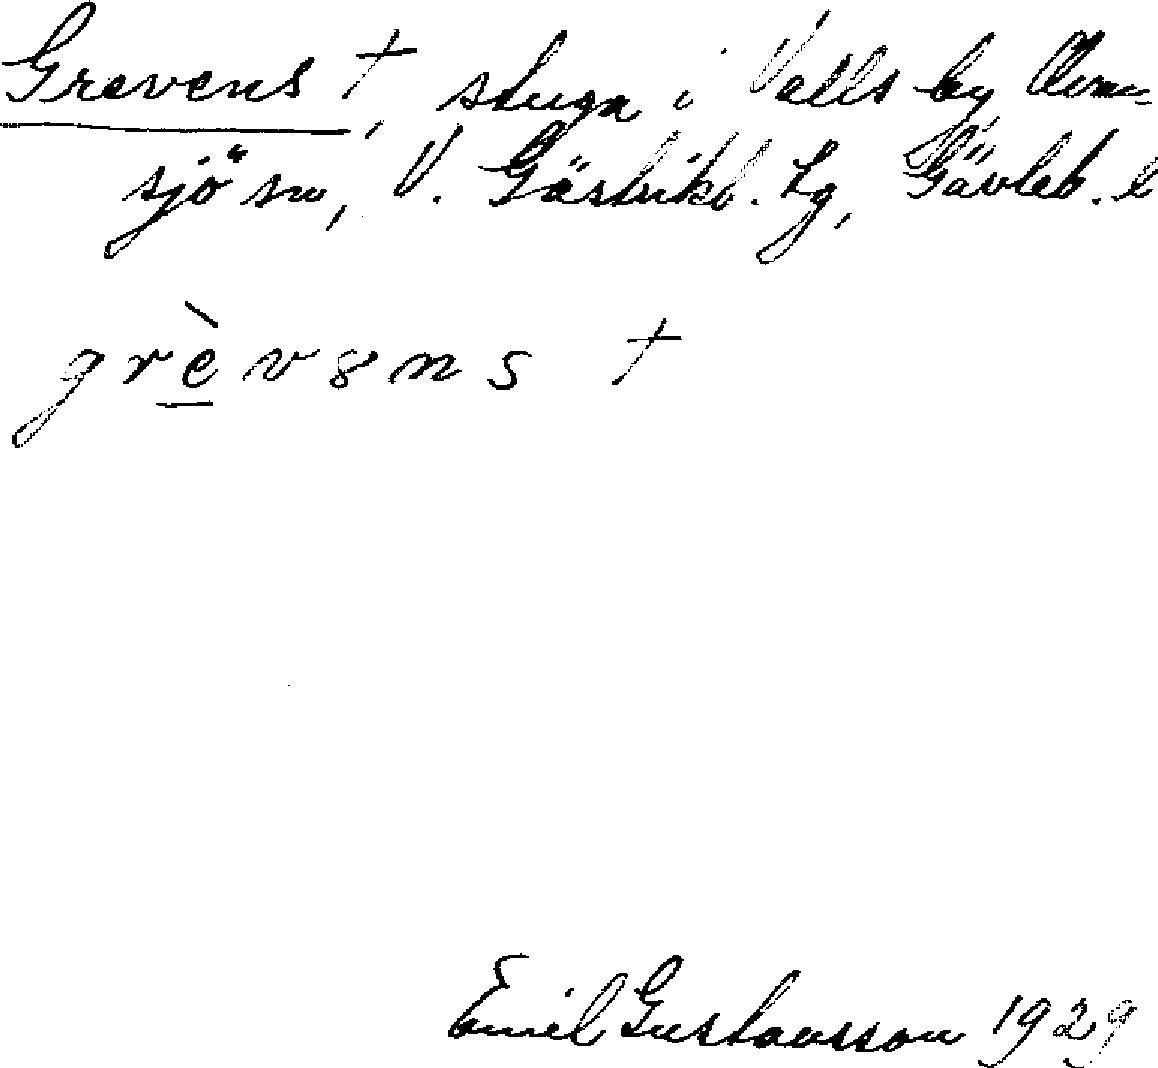 Grevens †, stuga i Valls by, Ovan-
sjö sn, V. Gästrikl. tg, Gävleb. l
grè̱vəns †
Emil Gustavsson 1929